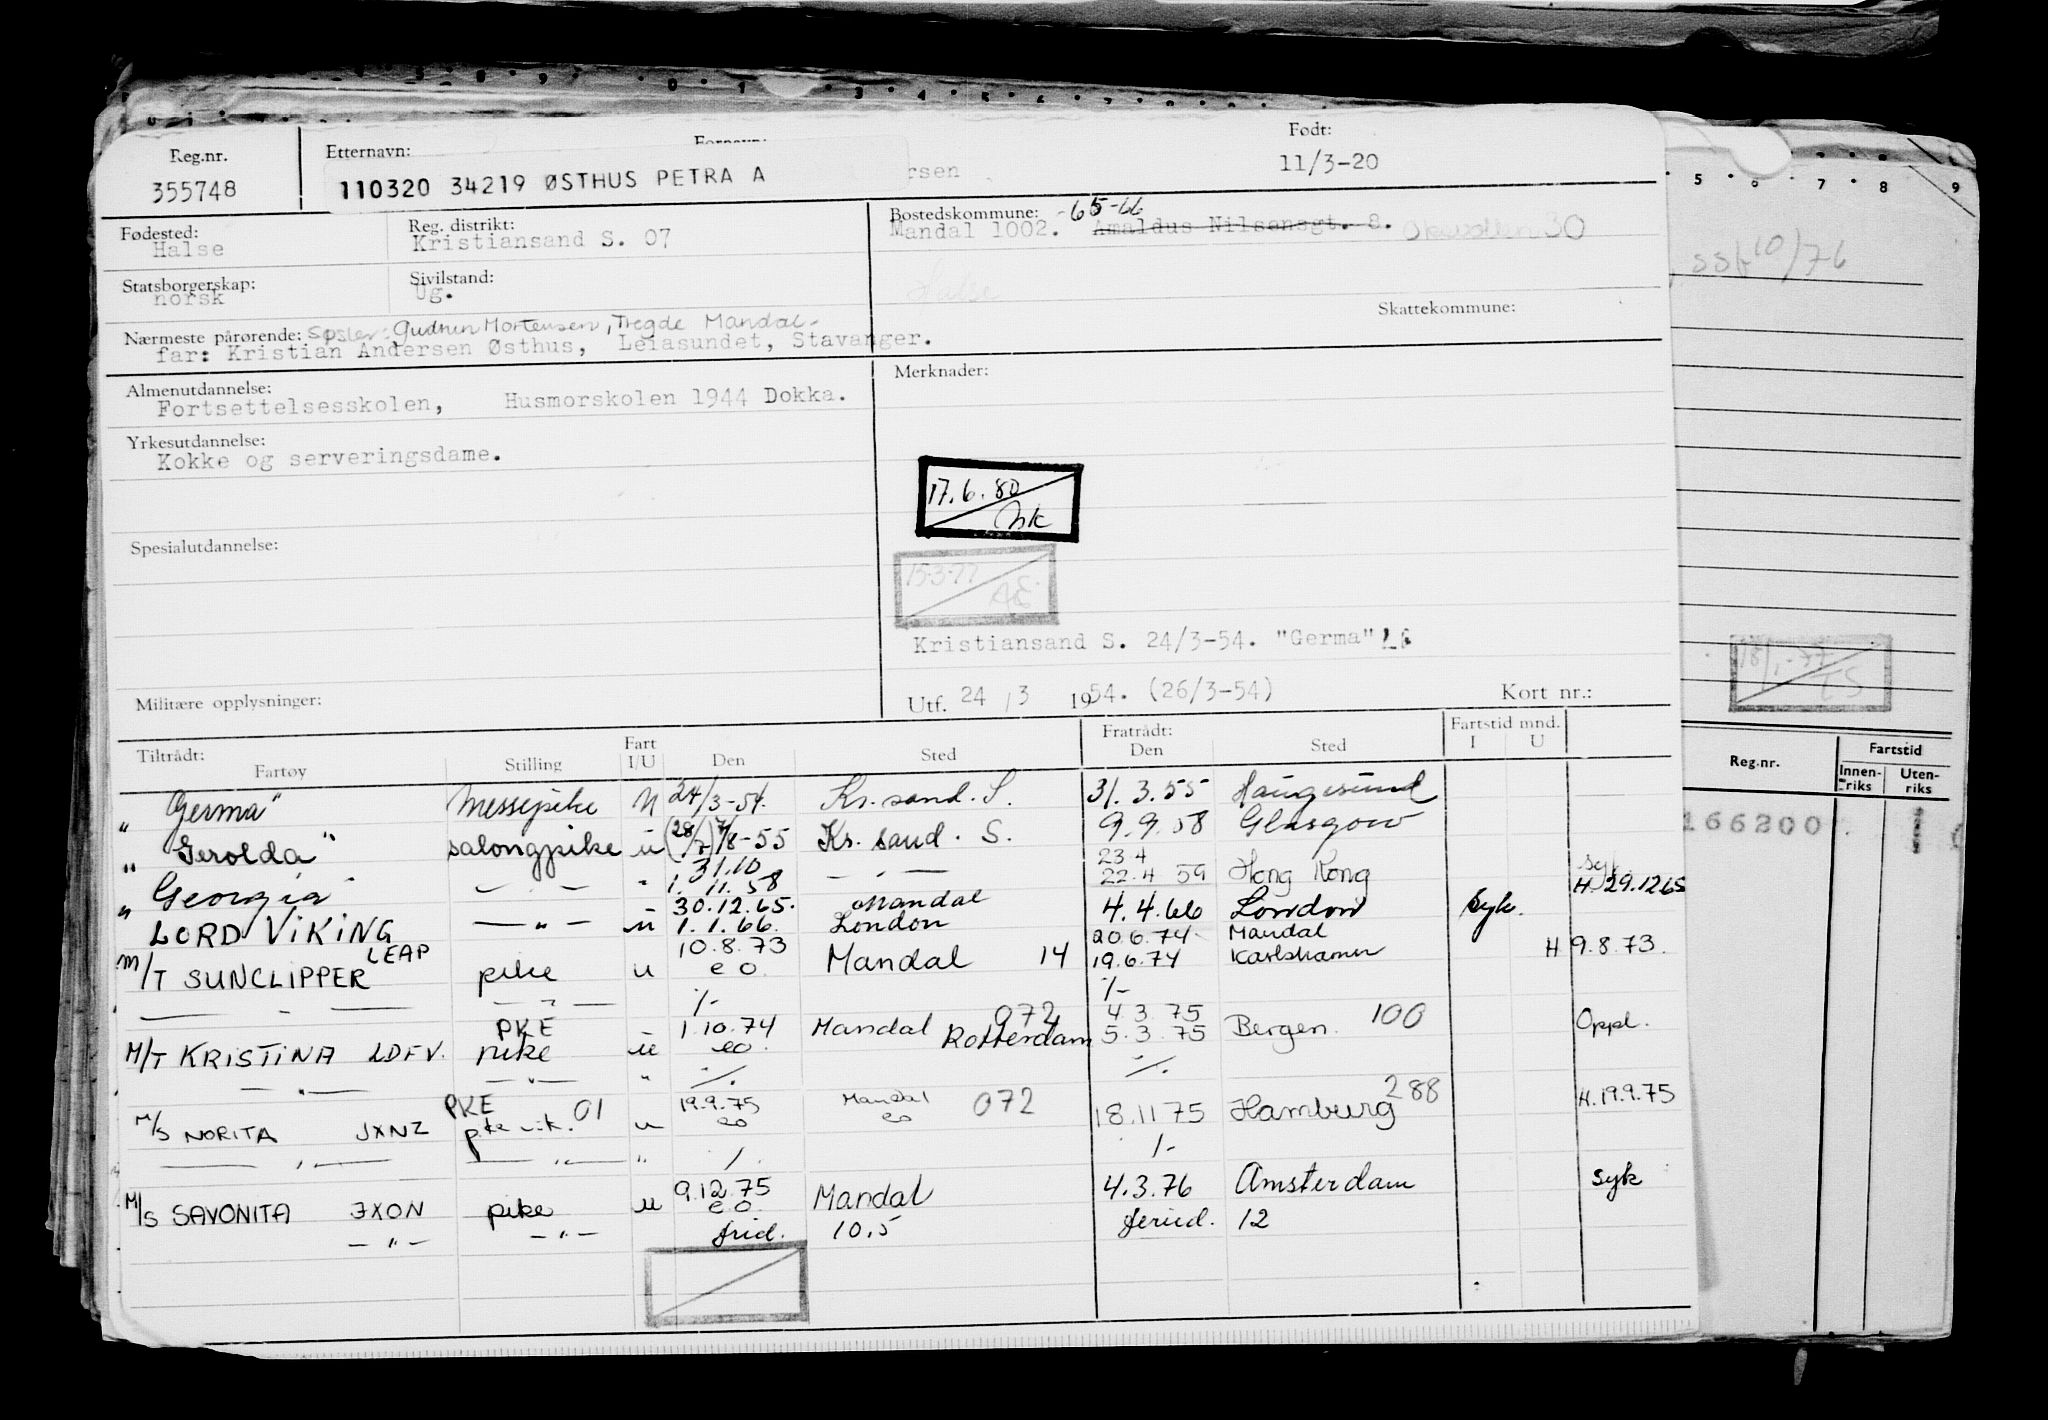 Reg.nr. Etternavn: Fornavn: Født:
355748 110320 34219 ØSTHUS PETRA A rsen 11/3-20
Fødested: Reg. distrikt: Bostedskommune: -65-66
Halse Kristiansand S. 07 Mandal 1002. Amaldus Nilsensgt. 8. 30
Statsborgerskap: Sivilstand:
norsk Ug. Halse
Skattekommune:
Nærmeste pårørende: Søster: Gudrun Mortensen, Tregde Mandal.
far: Kristian Andersen Østhus, Leiasundet, Stavanger.
Almenutdannelse: Merknader:
Fortsettelsesskolen, Husmorskolen 1944 Dokka.
Yrkesutdannelse:
Kokke og serveringsdame.
17.6.80
Spesialutdannelse:
15.3.77
AE
Kristiansand S. 24/3-54. "Germa"
Militære opplysninger: Utf. 24/3 1954. (26/3-54) Kort nr.:
Tiltrådt: Fart Fratrådt: Fartstid mnd.
Fartøy Stilling I/U Den Sted Den Sted I U
"Germa" Messepike U 24/3-54. Kr.sand. S. 31.3.55 Haugesund
"Gerolda" salongpike u (28/7) 7/8-55 Kr. sand. S. 9.9.58 Glasgow
31.10 23 4 syk
"Georgia" — " — " 1. 11. 58 — " — 22.4 59 Hong Kong H. 29.12 65
30.12.65. Mandal
LORD VIKING — " — u 1.1.66. London 4.4.66 London Syk.
LEAP 10.8.73 20.6.74 Mandal
M/T SUNCLIPPER pike u eo. Mandal 14 19.6.74 Karlshamn H 9.8.73.
— " — — " — ./- ./-
PKE 1.10.74 Mandal 072 4.3.75
M/T KRISTINA LDFV. pike u eo. Rotterdam 5.3.75 Bergen. 100 Oppl.
— " — — " — " ./. ./.
PKE 01 19.9.75 Mandal 072 288
M/S NORITA JXNZ pike vik. u eo eo 18.11 75 Hamburg H. 19.9.75
— " — — " — " ./. ./-
9.12.75
M/S SAVONITA JXON pike u e.o. Mandal 4.3.76 Amsterdam Syk
— " — — " — frid. 10,5 feried. 12
10/76
18/1-77
Reg.nr. Fartstid
Innen-riks Uten-riks
166200